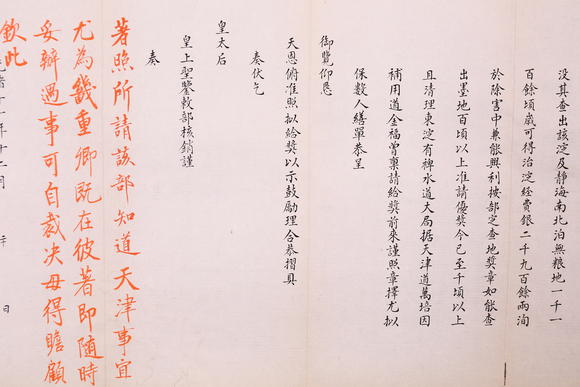 没其查出該淀及靜海南北泊無糧地一千一
百餘頃歲可得治淀經費銀二千九百餘兩洵
於除害中兼能興利按部定查地獎章如能查
出墨地百頃以上准請優獎今已至千頃以上
且清理東淀有裨水道大局据天津道萬培因
補用道金福曾稟請給獎前來謹照章擇尤拟
保數人繕單恭呈
御覽仰恳
天恩俯准照拟給獎以示鼓勵理合恭摺具
奏伏乞
皇太后
皇上聖鑒敕部核銷謹
奏
著照所請該部知道天津事宜
尤為幾重卿既在彼著即隨時
妥辦遇事可自裁決毋得瞻顧
欽此
年十二月
日